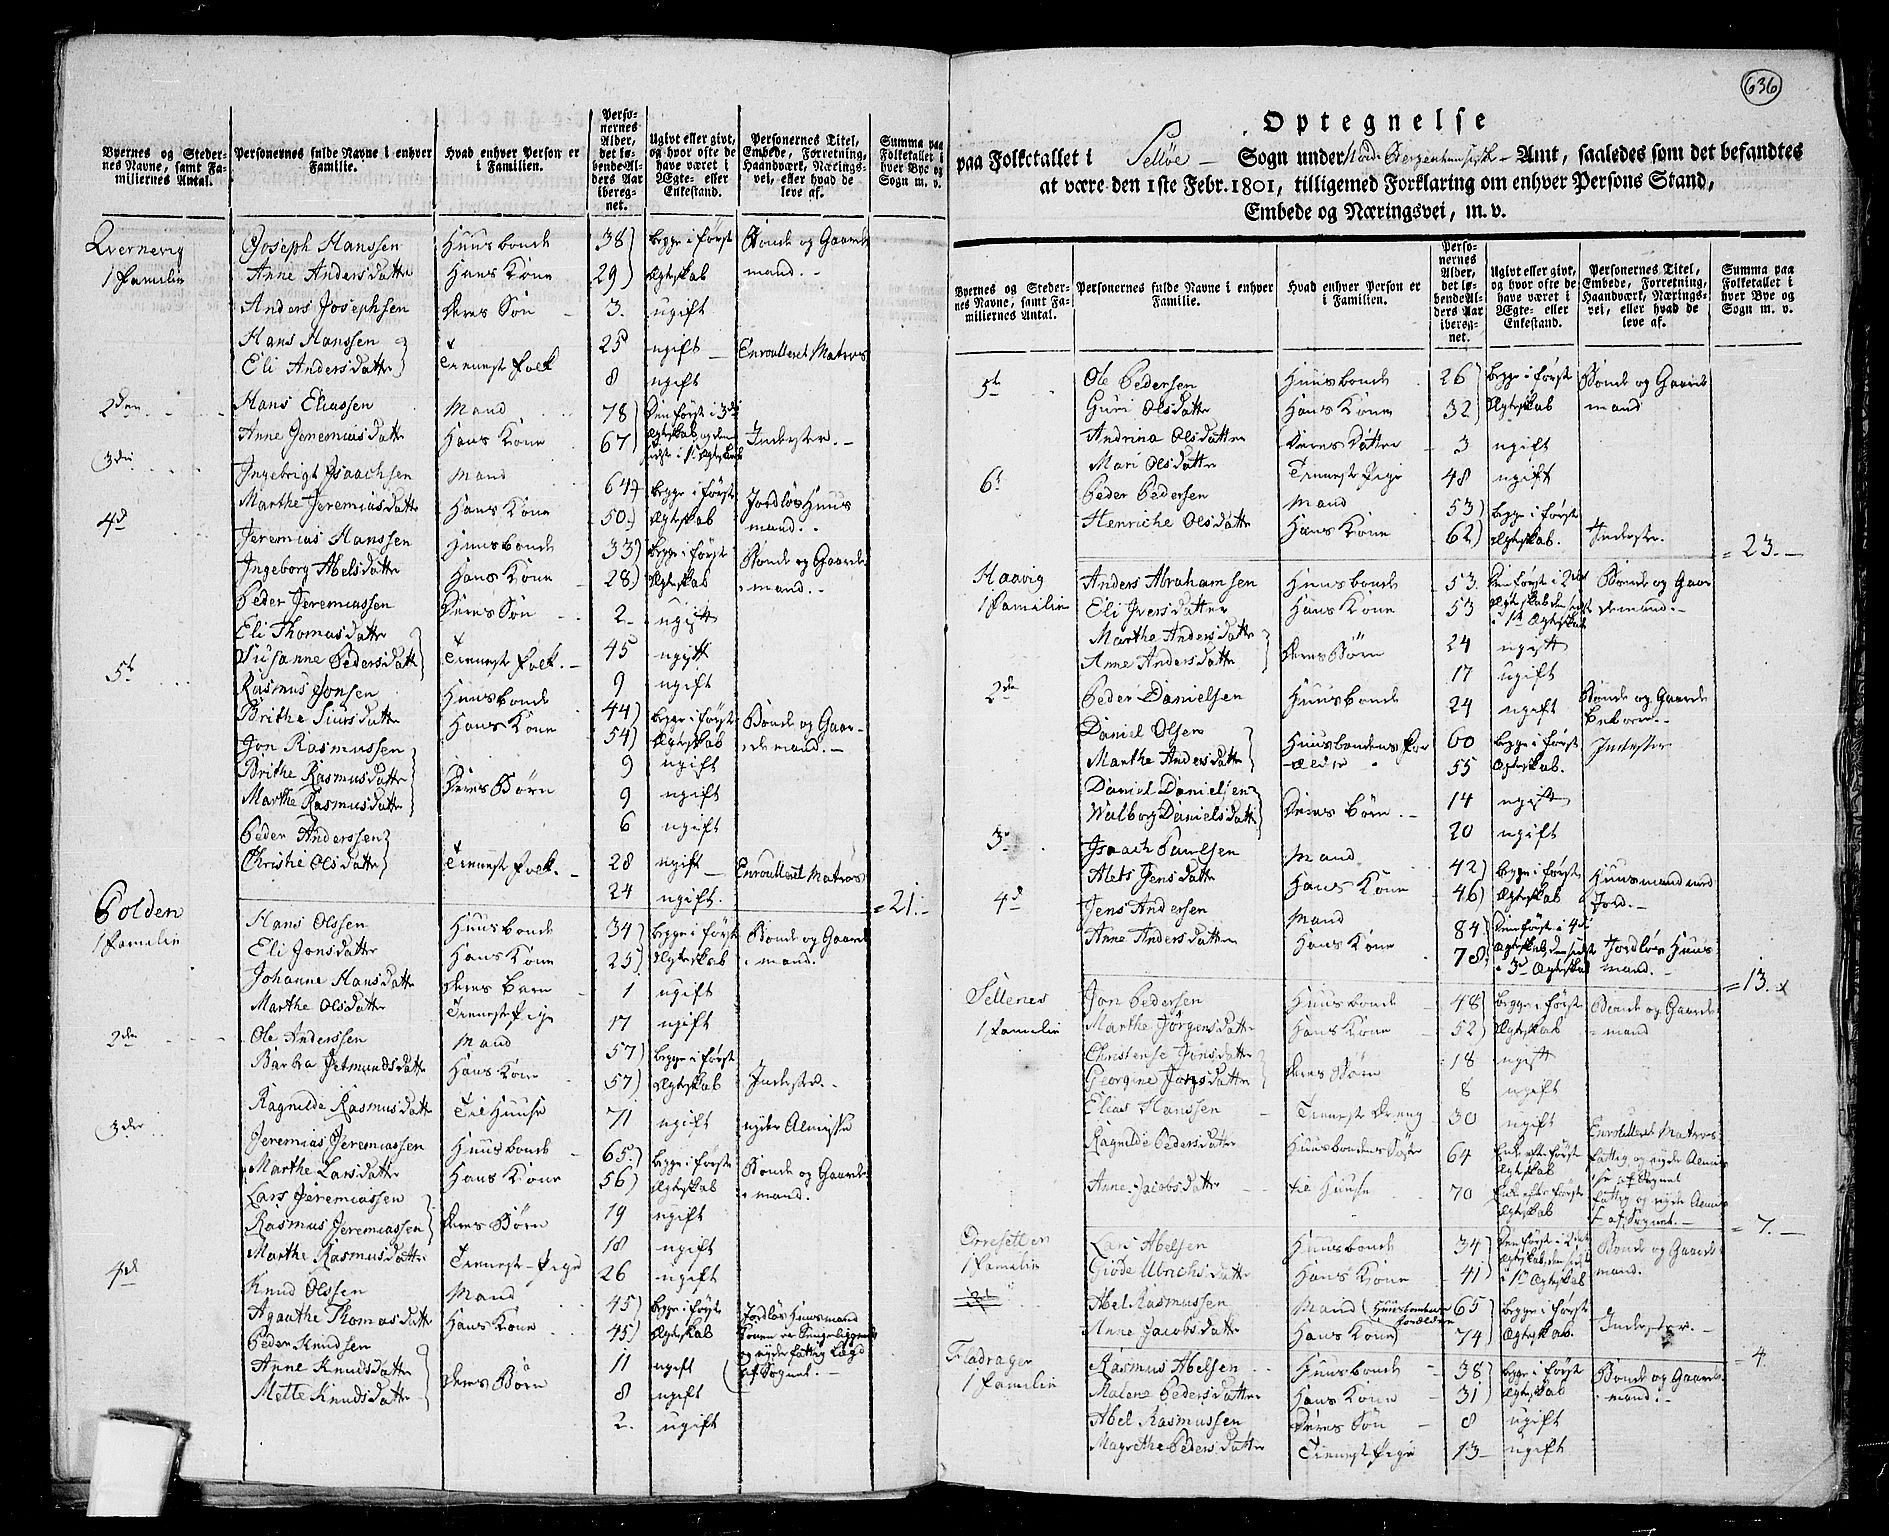 636
Byernes og Steder-nes Navne, samt Fa-miliernes Antal. | Personernes fulde Navne i enhver Familie. | Hvad enhver Person er i Familien. | Perso-nernes Alder, det lø-bende Al-ders Aar ibereg-net. | Ugivt eller givt, og hvor ofte de have været i Ægte- eller Enkestand. | Personernes Titel, Embede, Forretning, Haandværk, Nærings-vei, eller hvad de leve af. | Summa paa Folketallet i hver Bye og Sogn m. v.
Qvernevig | Joseph Hanssen | Huusbonde | 38 | begge i først | Bonde og Gaard
1 familie | Anne Andersdatter | Hans Kone | 29 | Ægteskab | mand.
Anders Josephsen | Deres Søn | 3. | ugift
Hans Hanssen | Tienest folk | 25 | ugift | Enroulleret Matros
Eli Andersdatter | 8 | ugift
2den | Hans Eliassen | Mand | 78 | Den først i 3die
Anne Jeremiasdatter | Hans Kone | 67 | Ægteskab, og den sidst i 1t Ægteskab | Inderster.
3die | Ingebrigt Isaachsen | Mand | 64 | begge i først | Jordløs Huus
Marthe Jeremiasdatter | Hans Kone | 50. | Ægteskab | mand.
4d | Jeremias Hanssen | Huusbonde | 33 | begge i først | Bonde og Gaard
Ingeborg Abelsdatter | Hans Kone | 28. | Ægteskab | mand.
Peder Jeremiassen | Deres Søn | 2 | ugift
Eli Thomasdatter | Tienest folk. | 45 | ugift
Susanne Pedersdatter | 9 | ugift
5t | Rasmus Jonsen | Huusbonde | 44 | begge i først | Bonde og Gaar-
Brithe Siursdatter | Hans Kone | 54 | Ægteskab | demand.
Jon Rasmussen | Deres Børn | 9 | ugift
Brithe Rasmusdatter | 9 | ugift
Marthe Rasmusdatter | 6 | ugift
Peder Anderssen | Tienest folk. | 28 | ugift | Enroulleret Matros
Christie Olsdatter | 24 | ugift. | = 21.
Polden | Hans Olssen | Huusbonde | 34 | begge i først | Bonde og Gaard
1 familie | Eli Jonsdatter | Hans Kone | 25 | Ægteskab | mand.
Johanne Hansdatter | Deres Barn | 1 | ugift
Marthe Olsdatter | Tienest Pige | 17 | ugift
2den | Ole Anderssen | Mand | 57 | begge i først
Barbra Jetmundsdatter | Hans Kone | 57 | Ægteskab | Inderster.
Ragnilde Rasmusdatter | Til Huuse | 71 | ugift | nyder Almisse
3der | Jeremias Jeremiassen | Huusbond | 65. | begge i første | Bonde og Gaard
Marthe Larsdatter | Hans Kone | 56 | Ægteskab | mand.
Lars Jeremiassen | Deres Børn | 19 | ugift
Rasmus Jeremiassen | 18 | ugift
Marthe Rasmusdatter | Tienest-Pige | 26 | ugift
4d | Knud Olssen | Mand | 45 | begge i først | Jordløs Huusmand
Agaathe Thomasdatter | Hans Kone | 45 | Ægteskab | Konen er Sengeliggende
Peder Knudsen | Deres Børn | 11 | ugift | og nyder fattig Lægd af Sognet.
Anne Knudsdatter | 8 | ugift
Mette Knudsdatter | 2. | ugift
Optegnelse
paa Folketallet i Selløe Sogn under Nord-Bergenhuusisk Amt, saaledes som det befandtes
at være den 1ste Febr. 1801, tilligemed Forklaring om enhver Persons Stand,
Embede og Næringsvei, m. v.
Byernes og Steder-nes Navne, samt Fa-miliernes Antal. | Personernes fulde Navne i enhver Familie. | Hvad enhver Person er i Familien. | Perso-nernes Alder, det lø-bende Al-ders Aar ibereg-net. | Ugivt eller givt, og hvor ofte de have været i Ægte- eller Enkestand. | Personernes Titel, Embede, Forretning, Haandværk, Nærings-vei, eller hvad de leve af. | Summa paa Folketallet i hver Bye og Sogn m. v.
5t | Ole Pedersen | Huusbonde | 26 | begge i først | Bonde og Gaard
Guri Olsdatter | Hans Kone | 32 | Ægteskab | mand
Andrina Olsdatter | Deres Datter | 3 | ugift
Mari Olsdatter | Tienest Pige | 48 | ugift
6t | Peder Pedersen | Mand | 53 | begge i først
Henriche Olsdatter | Hans Kone | 62 | Ægteskab. | Inderster. | = 23.
Haavig | Anders Abrahamsen | Huusbonde | 53. | Den først i 2det | Bonde og Gaar
1 familie | Eli Iversdatter | Hans Kone | 53 | Ægteskab den sidst i 1t Ægteskab | demand.
Marthe Andersdatter | Deres Børn | 24 | ugift
Anne Andersdatter | 17 | ugift
2den | Peder Danielsen | Huusbonde | 24 | ugift | Bonde og Gaard beboer.
Daniel Olsen | Huusbondens For | 60 | begge i først | Inderster
Marthe Andersdatter | ælder | 55 | Ægteskab.
Daniel Danielsen | Deres Børn. | 14 | ugift
Walborg Danielsdatter | 20 | ugift
3d | Isaach Paulsen | Mand | 42 | begge i først | Huusmand med
Alets Jensdatter | Hans Kone | 46 | Ægteskab | Jord.
4d | Jens Andersen | Mand | 84 | Den først i 4de | Jordløs Huus
Anne Andersdatter | Hans Kone | 78. | Ægteskab, den sidst i 3d Ægteskab | mand. | = 13. x
Sellenes | Jon Pedersen | Huusbonde | 48 | begge i først | Bonde og Gaard
1 familie | Marthe Jørgensdatter | Hans Kone | 52 | Ægteskab | mand
Christense Jonsdatter | Deres Børn | 18 | ugift
Georgine Jonsdatter | 8 | ugift
Elias Hanssen | Tienest Dreng | 30 | ugift | Enroulleret Matros
Ragnilde Pedersdatter | Huusbondens Søster | 64 | Enke efter første Ægteskab | fattig og nyder Almis-se af Sognet
Anne Jacobsdatter | til Huuse | 70 | Enke efter første Ægteskab | fattig og nyder Almis- af Sognet. | = 7.
Orresetten | Lars Abelsen | Huusbonde | 34 | Den først i 2det | Bonde og Gaard
1 familie | Giøde Ulrichsdatter | Hans Kone | 41 | Ægteskab, den sidst i 1t Ægteskab | mand.
Abel Rasmussen | Mand (Huusbondens | 65 | begge i først
Anne Jacobsdatter | Hans Kone forældre | 74 | Ægteskab. | Inderster. | = 4.
Fladrager | Rasmus Abelsen | Huusbonde | 38 | begge i først | Bonde og Gaard
1 familie | Malene Pedersdatter | Hans Kone | 31 | Ægteskab | mand.
Abel Rasmussen | Deres Søn | 8 | ugift
Magrethe Pedersdatter | Tienest Pige | 13 | ugift